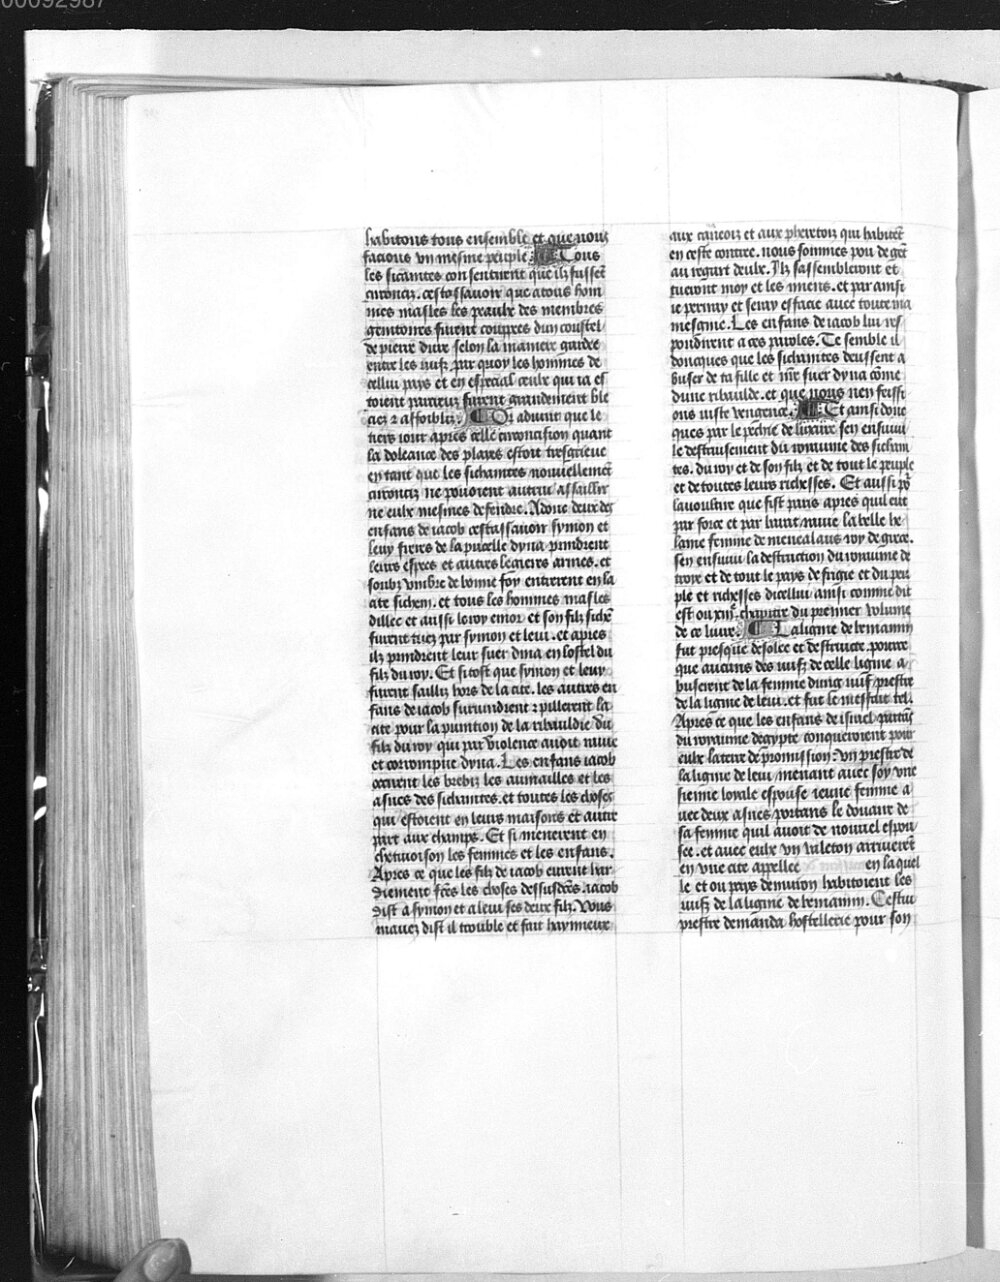 00092987
habitons tous ensemble et que nous
facions vn mesme peuple ¶ Tous
les sicamites consentirent que ilz fussẽt
circonciz. cestassauoir que a tous hom
mes masles les peaulx des membres
genitoires furent couppees dun coustel
de pierre dure selon la maniere gardee
entre les iuifz par quoy les hommes de
cellui pays et en especial ceulx qui ia es
toient furent grandement ble
ciez ⁊ affoibliz. ¶ Or aduint que le
tiers iour apres celle circoncision quant
la doleance des playes estoit tresgrieue
en tant que les sichamites nouuellemẽt
circonciz ne pouoient autrui assaillir
ne eulx mesmes defendre. Adonc deux des
enfans de iacob cestassauoir symon et
leuy freres de la pucelle dyna prindrent
leurs espees et autres legieres armes. et
soubz vmbre de bonne foy entrerent en la
cite sichem. et tous les hommes masles
dillec et aussi le roy emor et son filz sichẽ
furent tuez par symon et leui. et apres
ilz prindrent leur suer dina en lostel du
filz du roy. Et si tost que symon et leuy
furent sailliz hors de la cite. les autres en
fans de iacob suruindrent ⁊ pillerent la
cite pour la punition de la ribauldie du
filz du roy qui par violence auoit rauie
et corrompue dyna. Les enfans iacob
occirent les brebiz les aumailles et les
asnes des sichamites. et toutes les choses
qui estoient en leurs maisons et autre
part aux champs. Et si menerent en
chetiuoison les femmes et les enfans.
Apres ce que les filz de iacob eurent har
diement fctẽs les choses dessusdcẽs. iacob
dist a symon et a leui ses deux filz. Vous
mauez dist il trouble et fait haynneux
aux cancois et aux pherezois qui habitẽt
en ceste contree. nous sommes pou de gẽt
au regart deulx. Ilz sassembleront et
tueront moy et les miens. et par ainsi
ie periray et seray efface auec toute ma
mesgnie. Les enfans de iacob lui res
pondirent a ces paroles. Te semble il
doncques que les sichamites deussent a
buser de ta fille et nr̃e suer dyna cõme
dune ribaulde. et que nous nen feissi
ons iuste vengence. ¶ Et ainsi donc
ques par le pechie de luxure sen ensuiui
le destruisement du royaume des sicham
tes. du roy et de son filz et de tout le peuple
et de toutes leurs richesses. Et aussi pr̃
lauoultire que fist paris apres quil eut
par force et par larrecin rauie la belle he
laine femme de menealaus roy de grece.
sen ensuiui la destruction du royaume de
troye et de tout le pays de frigie et du peu
ple et richesses dicellui ainsi comme dit
est ou xiiie. chapitre du premier volume
de ce liure. ¶ La ligne de beniamin
fut presque desolee et destruicte. pource
que aucuns des iuifz de celle ligne a
buserent de la femme dung iuif prestre
de la ligne de leui. et fut le meffait tel.
Apres ce que les enfans de israel partãs
du royaume degypte conqueroient pour
eulx la terre de promission: vn prestre de
la ligne de leui menant auec soy vne
sienne loyale espouse ieune femme a
uec deux asnes portans le douaire de
sa femme quil auoit de nouuel espou
see. et auec eulx vn valeton arriuerẽt
en vne cite appellee en laquel
le et ou pays denuiron habitoient les
iuifz de la ligne de beniamin. Cestui
prestre demanda hostellerie pour son